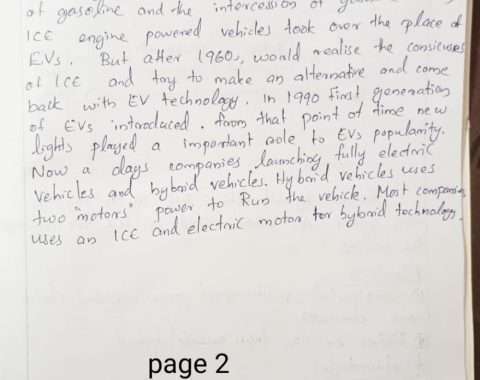 of gasoline and the intercession of
ICE engine powered vehicles took over the place of
EVs. But after 1960s, would realise the consicuses
of ICE and try to make an alternative and come
back with EV technology. In 1990 first generation
of EVs introduced. from that point of time new
lights played a important role to EVs popularity.
Now a days companies launching fully electric
vehicles and hybrid vehicles. Hybrid vehicles uses
two "motors" power to Run the vehicle. Most companies
uses an ICE and electric motor for hybrid technology.
page 2